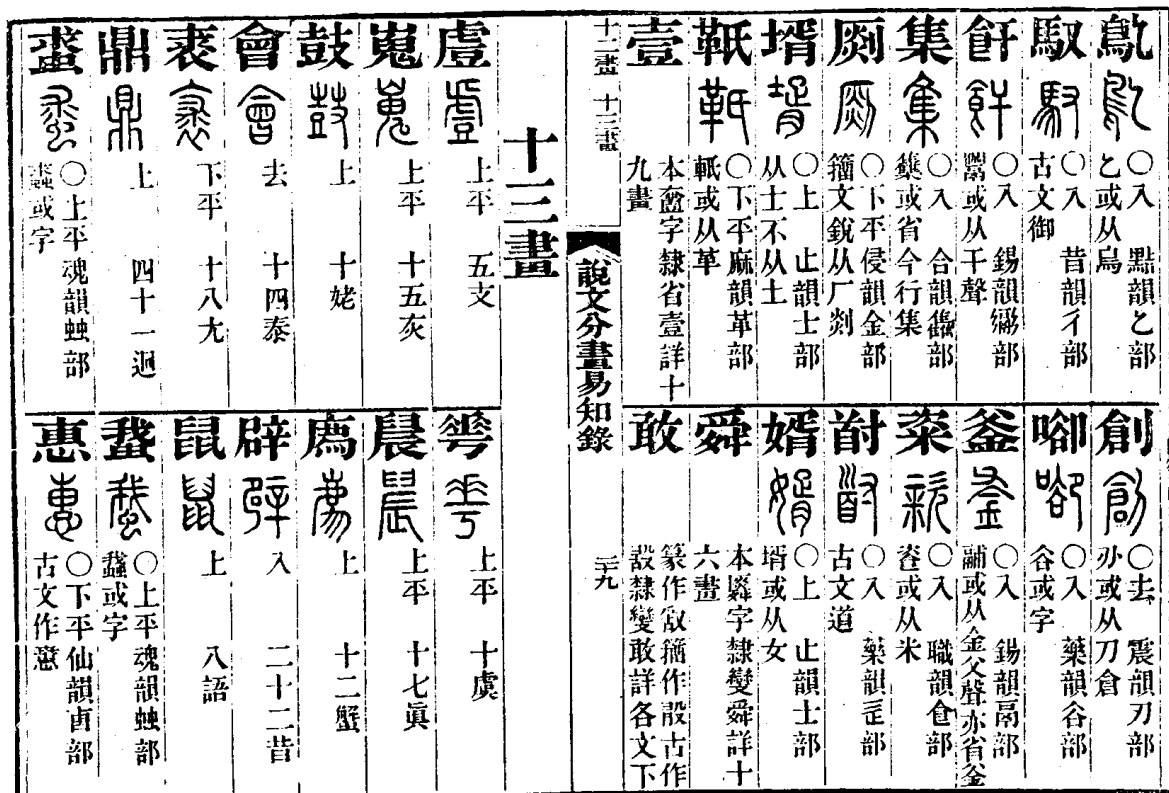 鳦
○入 黠韻乙部
乙或从鳥
馭
○入 昔韻彳部
古文御
飦
○入 錫韻䰜部
鬻或从干聲
集
○入 合韻雥部
雧或省今行集
㓹
○下平侵韻金部
籀文銳从厂剡
壻
○上 止韻士部
从士不从土
○下平麻韻革部
軝或从革
壹
字隸省壹詳十
九畫
創
○去 震韻刃部
刅或从刀倉
○入 藥韻谷部
谷或字
釜
○入 錫韻鬲部
鬴或从金父聲亦省釜
粢
○入 職韻食部
或从米
○入 藥韻辵部
古文道
婿
○上 止韻士部
壻或从女
舜
本䑞字隸變舜詳十
六畫
敢
篆作 籀作 古作
隸變敢詳各文下
十二畫 十三畫
說文分畫易知錄
三九
十三畫
䖒
上平 五支
嵬
上平 十五灰
鼓
上 十姥
會
去 十四泰
裘
下平 十八尤
鼎
上 四十一迥
○上平魂韻䖵部
或字
𠌶
上平 十虞
晨
上平 十七眞
廌
上 十二蟹
辟
入 二十二昔
鼠
上 八語
○上平魂韻䖵部
或字
惠
○下平仙韻叀部
古文作